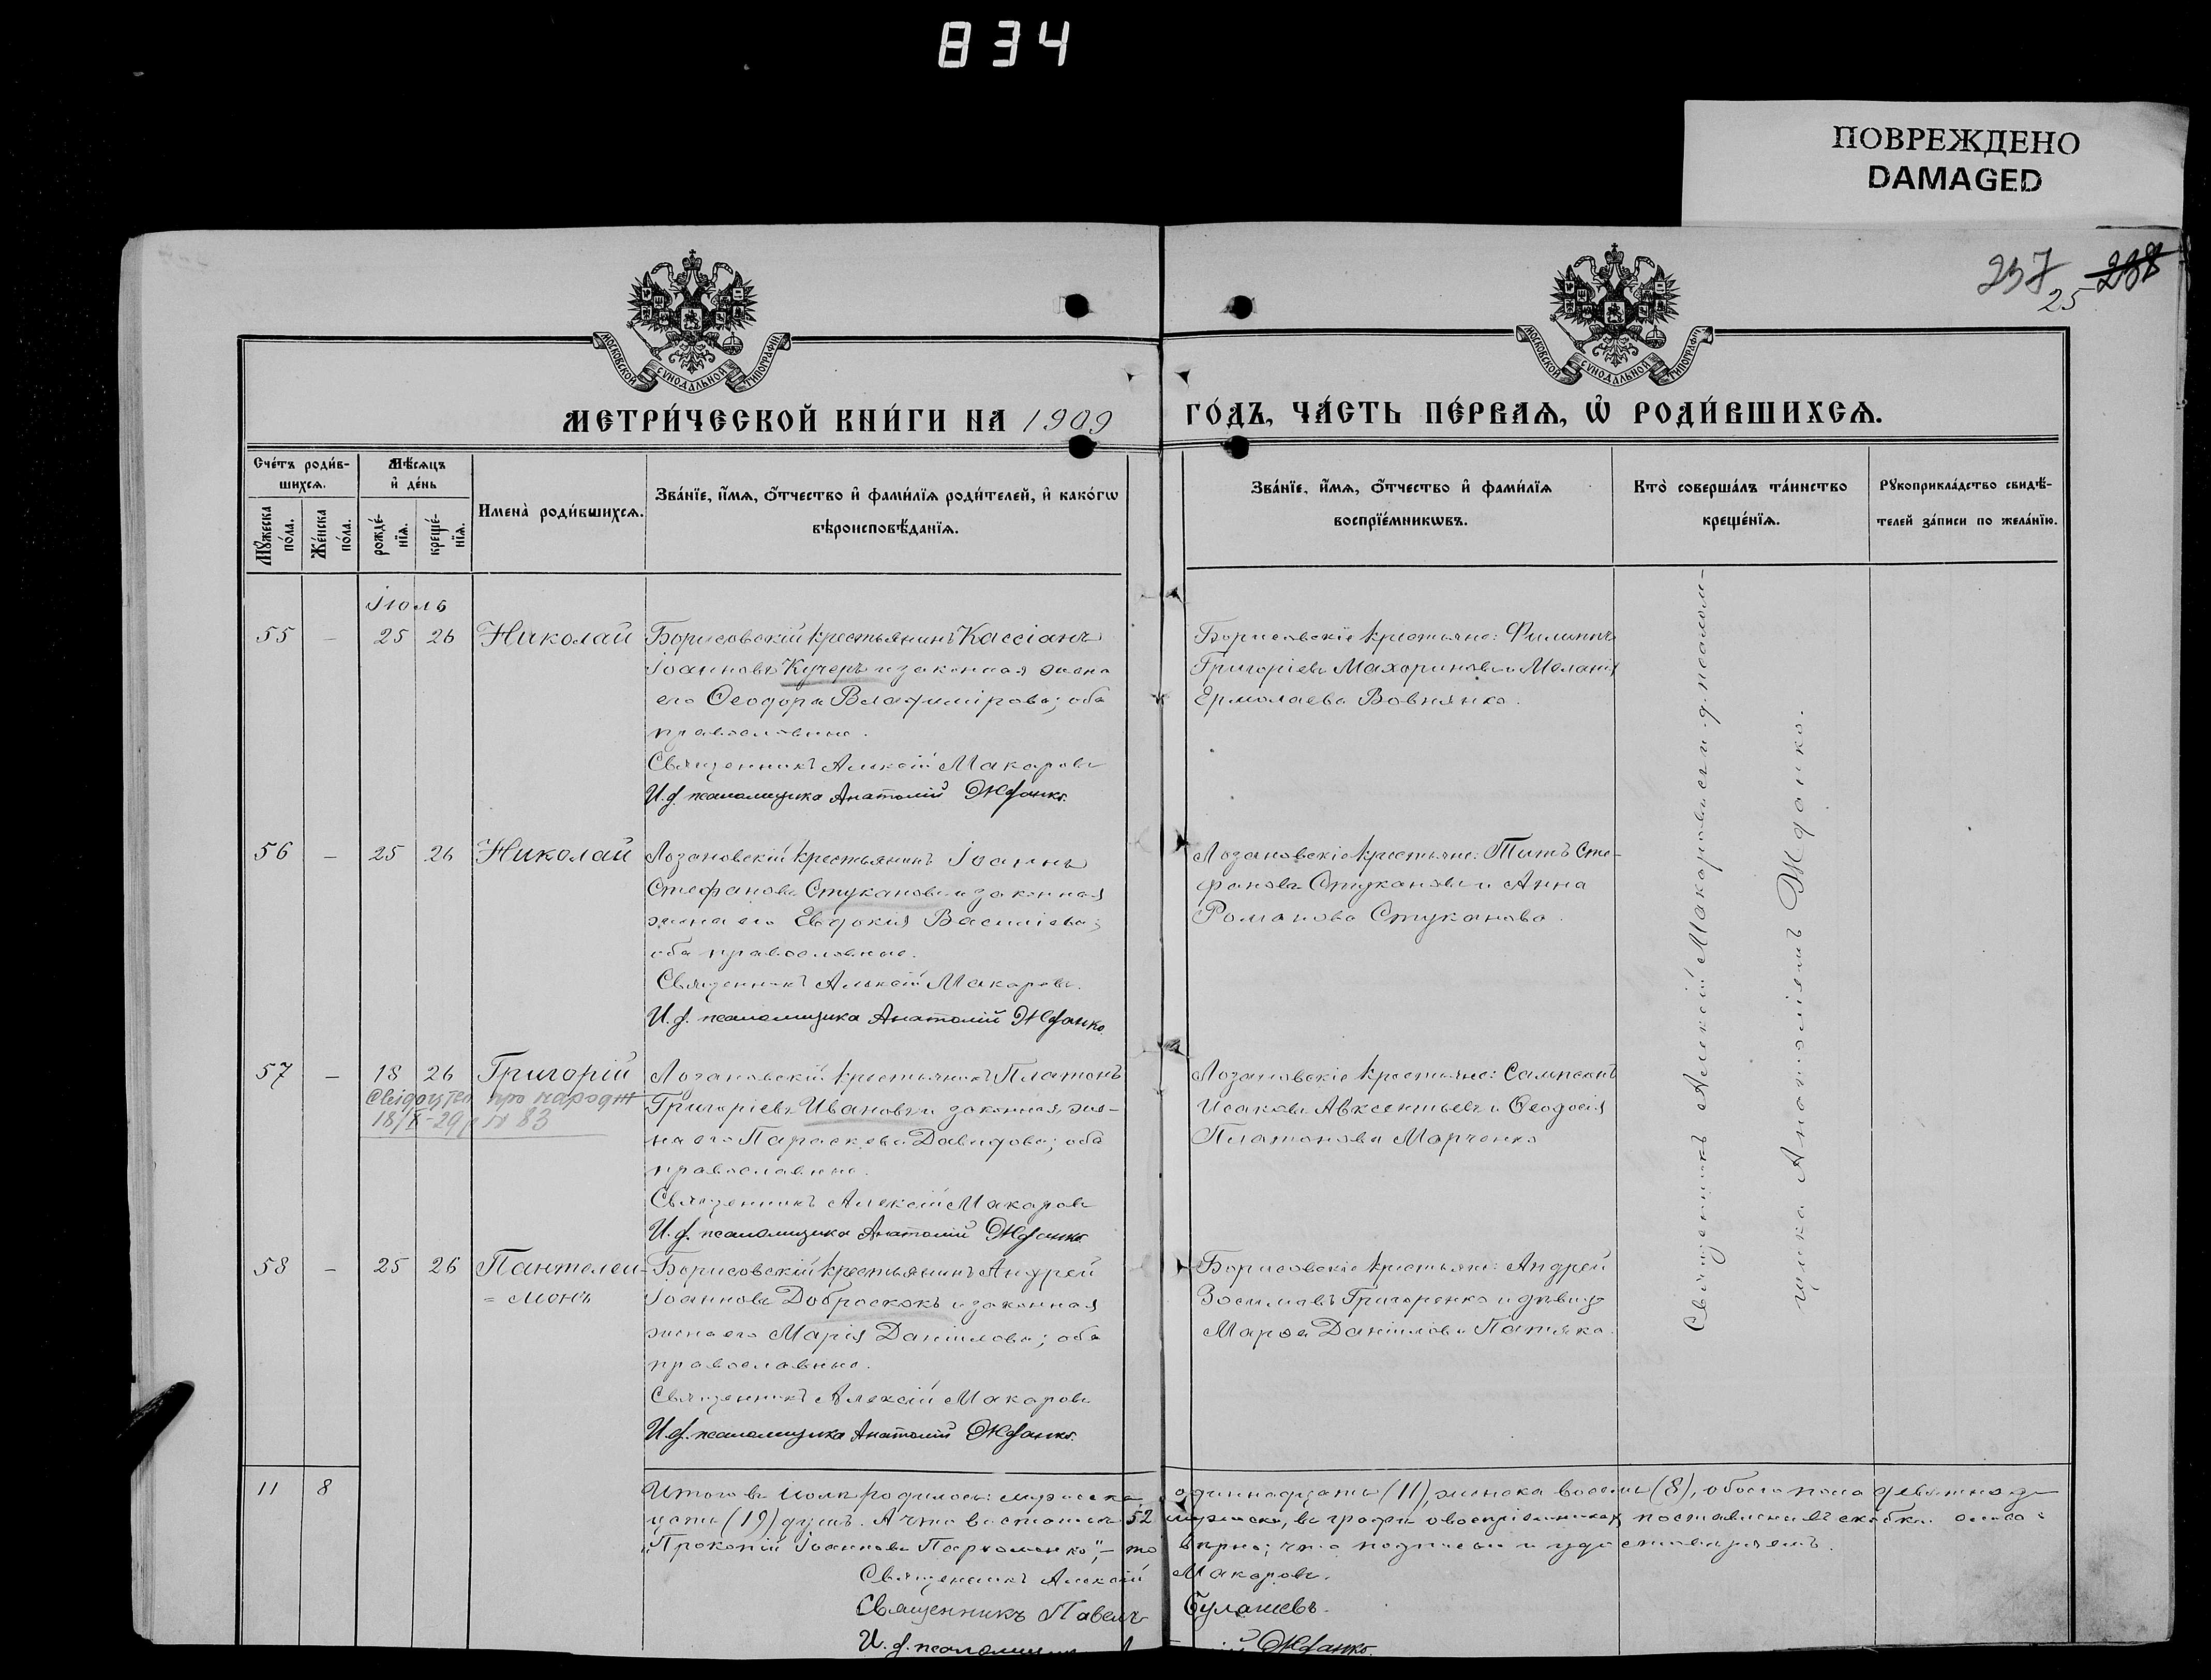 834
ПОВРЕЖДЕНО
DAMAGED
237 238
25
МОСКОВСКОЙ СѴНОДАЛЬНОЙ ТИПОГРАФІИ
МОСКОВСКОЙ СѴНОДАЛЬНОЙ ТИПОГРАФІИ
МЕТРИ́ЧЕСКОЙ КНИ́ГИ НА 1909 ГО́ДЪ, ЧА́СТЬ ПЕ́РВАѦ, Ѡ҆ РОДИ́ВШИХСѦ.
Сче́тъ роди́в-
шихсѧ.
Мꙋ́жеска по́ла.
Же́нска по́ла.
Мѣ́сѧцъ и҆ де́нь
рожде́-
нїѧ.
креще́-
нїѧ.
И҆мена̀ роди́вшихсѧ.
Зва́нїе, и҆́мѧ, ѻ҆́тчество и҆ фами́лїѧ роди́телей, и҆ како́гѡ
вѣроисповѣ́данїѧ.
Зва́нїе, и҆́мѧ, ѻ҆́тчество и҆ фами́лїѧ
воспрїе́мникѡвъ.
Кто̀ соверша́лъ та́инство
креще́нїѧ.
Рꙋкоприкла́дство свидѣ́-
телей за́писи по жела́нїю.
Іюль
55 - 25 26 Николай
Борисовскій крестьянинъ Кассіанъ
Іоанновъ Кучеръ и законная жена
его Ѳеодора Владимірова; оба
православные.
Священникъ Алексій Макаровъ
И. д. псаломщика Анатолій Жданко.
Борисовскіе крестьяне: Филиппъ
Григоріевъ Махориновъ и Меланія
Ермолаева Вовнянко.
56 - 25 26 Николай
Лозановскій крестьянинъ Іоаннъ
Стефановъ Стукановъ и законная
жена его Евдокія Василіева;
оба православные.
Священникъ Алексій Макаровъ.
И. д. псаломщика Анатолій Жданко
Лозановскіе крестьяне: Титъ Сте-
фановъ Стукановъ и Анна
Романова Стуканова.
57 - 18 26 Григорій
Свідоцтво про народж
18/ -29 р № 83
Лозановскій крестьянинъ Платонъ
Григоріевъ Ивановъ и законная же-
на его Параскева Давидова; оба
православные.
Священникъ Алексій Макаровъ
И. д. псаломщика Анатолій Жданко
Лозановскіе крестьяне: Сампсонъ
Исаковъ Авксентьевъ и Ѳеодосія
Платонова Марченко
58 - 25 26 Пантелеи-
= монъ
Борисовскій крестьянинъ Андрей
Іоанновъ Доброскокъ и законная
жена его Марія Даніилова; оба
православные.
Священникъ Алексій Макаровъ
И. д. псаломщика Анатолій Жданко.
Борисовскіе крестьяне: Андрей
Зосимовъ Григоренко и дѣвица
Марѳа Даніилова Патяка.
Священникъ Алексій Макаровъ съ и. д. псалом-
щика Анатоліемъ Жданко.
11 8
Итого въ іюлѣ родилось: мужеска одиннадцать (11), женска восемь (8), обоего пола девятнад-
цать (19) душъ. А что въ статьѣ 52 мужеска, въ графѣ о воспріемникахъ поставлены въ скобки слова:
„Прокопій Іоанновъ Пархоменко", - то вѣрно; что подписью и удостовѣряемъ.
Священникъ Алексій Макаровъ.
Священникъ Павелъ Булашевъ.
И. д. псаломщ Жданко.